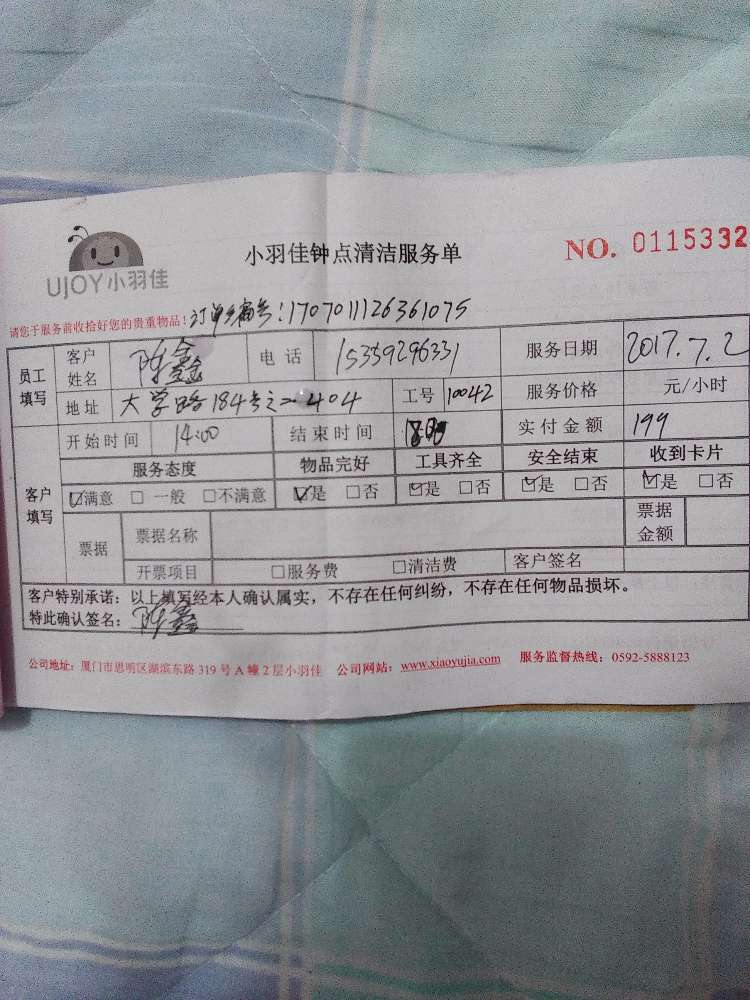 UJOY小羽佳
小羽佳钟点清洁服务单
NO. 0115332
请您于服务前收拾好您的贵重物品! 订单编号:170701126361075
员工填写 客户姓名 陈鑫 电话 15359296331 服务日期 2017.7.2
地址 大学路184号之二404 工号 10042 服务价格 元/小时
开始时间 14:00 结束时间 实付金额 199
客户填写 服务态度 物品完好 工具齐全 安全结束 收到卡片
☑满意 □一般 □不满意 ☑是 □否 ☑是 □否 ☑是 □否 ☑是 □否
票据 票据名称 票据金额
开票项目 □服务费 □清洁费 客户签名
客户特别承诺:以上填写经本人确认属实,不存在任何纠纷,不存在任何物品损坏。
特此确认签名:陈鑫
公司地址:厦门市思明区湖滨东路 319 号 A 幢 2 层小羽佳 公司网站:www.xiaoyujia.com 服务监督热线:0592-5888123